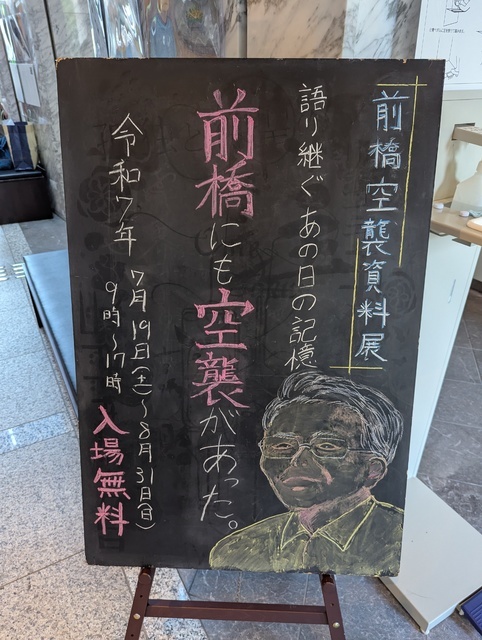 前橋空襲資料展
語り継ぐあの日の記憶
前橋にも空襲があった。
令和7年 7月19日(土)～8月31日(日)
9時～17時
入場無料